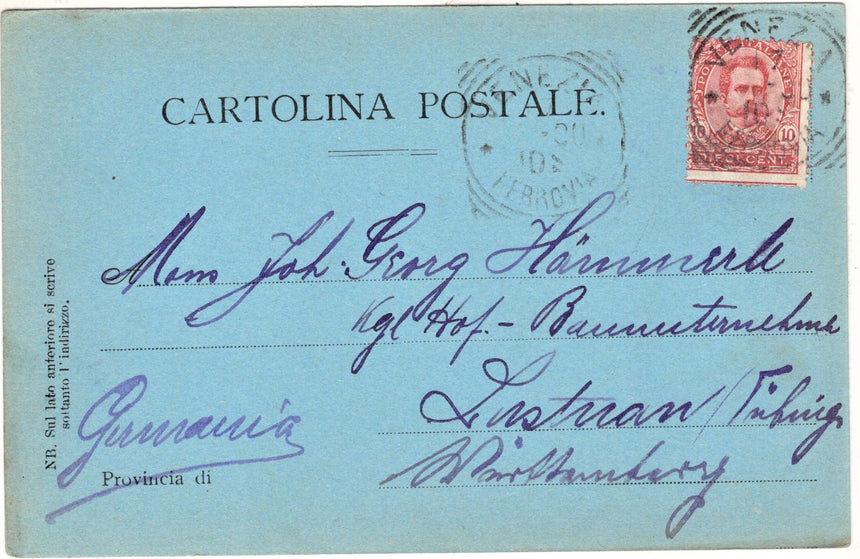 CARTOLINA POSTALE.
VENEZIA
FERROVIA
VENEZIA
10
FERROVIA
POSTE ITALIANE
10 10
CENT.
Mons Joh. Georg Hämmerle
Kgl Hof.- Bauunternehme
Lustnau / Tübing
Württemberg
Germania
Provincia di
NB. Sul lato anteriore si scrive
soltanto l'indirizzo.